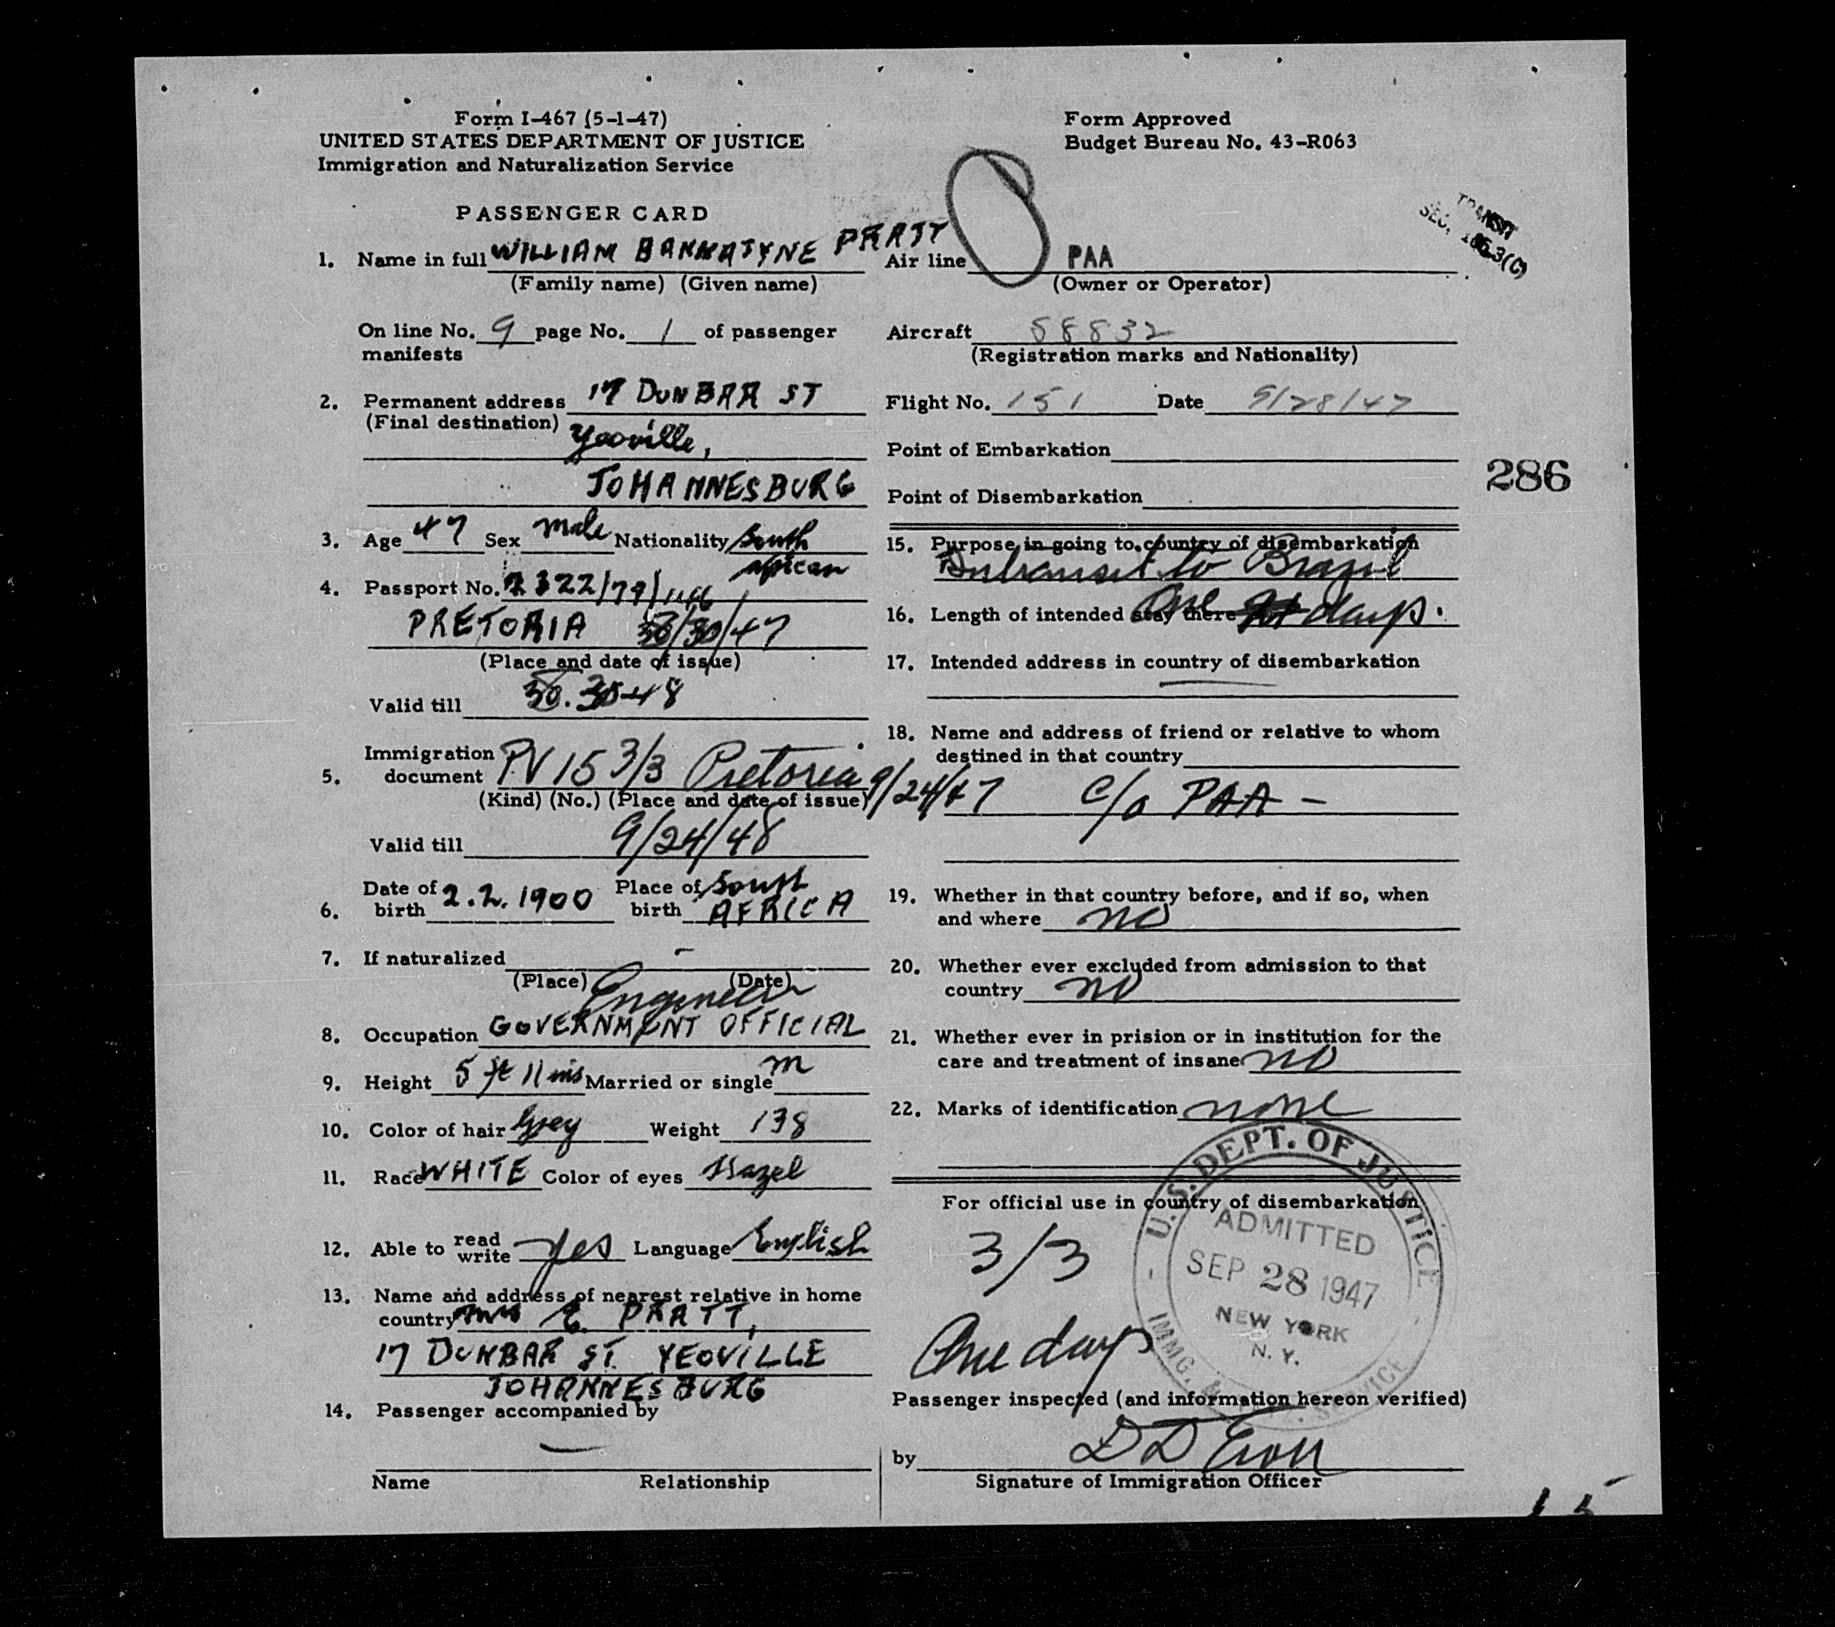 Form I-467 (5-1-47)
UNITED STATES DEPARTMENT OF JUSTICE
Immigration and Naturalization Service
Form Approved
Budget Bureau No. 43-R063
TRANSIT
SEC. 3(C)
PASSENGER CARD
1. Name in full WILLIAM BANNATYNE PRATT
(Family name) (Given name)
Air line PAA
(Owner or Operator)
On line No. 9 page No. 1 of passenger
manifests
Aircraft 88832
(Registration marks and Nationality)
2. Permanent address 17 DUNBAR ST
(Final destination)
Yeoville,
JOHANNESBURG
Flight No. 151 Date 9/28/47
Point of Embarkation
Point of Disembarkation
286
3. Age 47 Sex male Nationality South
African
4. Passport No.
PRETORIA
(Place and date of issue)
Valid till
5. Immigration
document PV 15 3/3 Pretoria 9/24/47
(Kind) (No.) (Place and date of issue)
Valid till 9/24/48
6. Date of
birth 2.2.1900 Place of
birth South
AFRICA
7. If naturalized -
(Place) (Date)
Engineer
8. Occupation GOVERNMENT OFFICIAL
9. Height 5 ft 11 ins Married or single m
10. Color of hair Grey Weight 138
11. Race WHITE Color of eyes Hazel
12. Able to read
write Yes Language English
13. Name and address of nearest relative in home
country Mrs E. PRATT,
17 DUNBAR ST. YEOVILLE
JOHANNESBURG
14. Passenger accompanied by
—
Name Relationship
15. Purpose in going to country of disembarkation
Intransit to Brazil
16. Length of intended stay there One days.
17. Intended address in country of disembarkation
18. Name and address of friend or relative to whom
destined in that country
c/o PAA -
19. Whether in that country before, and if so, when
and where no
20. Whether ever excluded from admission to that
country no
21. Whether ever in prision or in institution for the
care and treatment of insane no
22. Marks of identification none
For official use in country of disembarkation
3/3
One day
U. S. DEPT. OF JUSTICE
ADMITTED
SEP 28 1947
NEW YORK
N. Y.
IMMG. SERVICE
Passenger inspected (and information hereon verified)
by
Signature of Immigration Officer